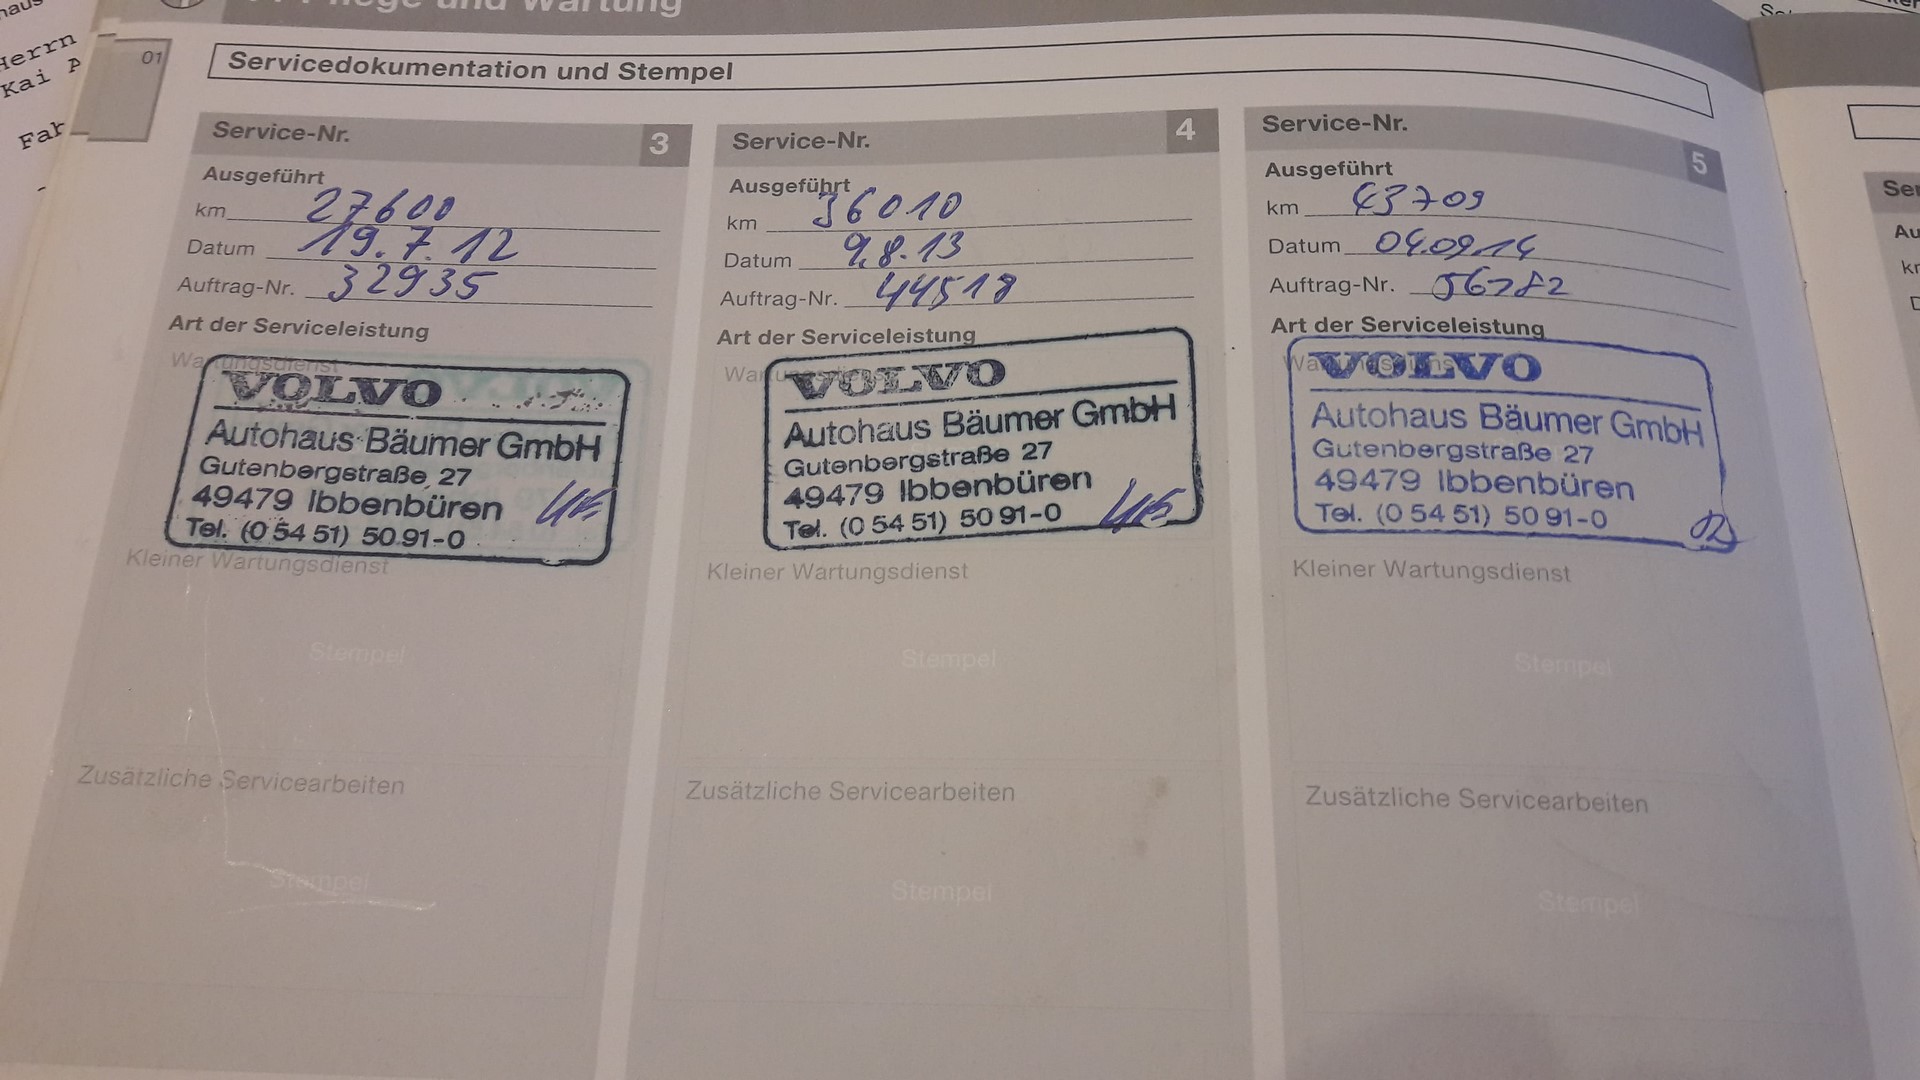 Pflege und Wartung
Herrn
Kai P
01
Servicedokumentation und Stempel
Service-Nr. 3
Ausgeführt
km 27600
Datum 19.7.12
Auftrag-Nr. 32935
Art der Serviceleistung
Wartungsdienst
VOLVO
Autohaus Bäumer GmbH
Gutenbergstraße 27
49479 Ibbenbüren
Tel. (0 54 51) 50 91-0
Kleiner Wartungsdienst
Stempel
Zusätzliche Servicearbeiten
Stempel
Service-Nr. 4
Ausgeführt
km 36010
Datum 9.8.13
Auftrag-Nr. 44518
Art der Serviceleistung
Wartungsdienst
VOLVO
Autohaus Bäumer GmbH
Gutenbergstraße 27
49479 Ibbenbüren
Tel. (0 54 51) 50 91-0
Kleiner Wartungsdienst
Stempel
Zusätzliche Servicearbeiten
Stempel
Service-Nr. 5
Ausgeführt
km 43709
Datum 04.09.14
Auftrag-Nr. 56782
Art der Serviceleistung
Wartungsdienst
VOLVO
Autohaus Bäumer GmbH
Gutenbergstraße 27
49479 Ibbenbüren
Tel. (0 54 51) 50 91-0
Kleiner Wartungsdienst
Stempel
Zusätzliche Servicearbeiten
Stempel